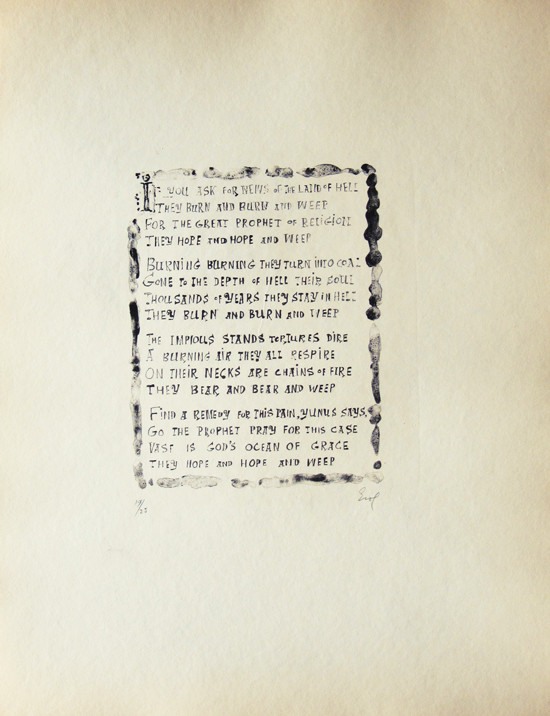 IF YOU ASK FOR NEWS OF THE LAND OF HELL
THEY BURN AND BURN AND WEEP
FOR THE GREAT PROPHET OF RELIGION
THEY HOPE AND HOPE AND WEEP
BURNING BURNING THEY TURN INTO COAL
GONE TO THE DEPTH OF HELL THEIR SOUL
THOUSANDS OF YEARS THEY STAY IN HELL
THEY BURN AND BURN AND WEEP
THE IMPIOUS STANDS TORTURES DIRE
A BURNING AIR THEY ALL RESPIRE
ON THEIR NECKS ARE CHAINS OF FIRE
THEY BEAR AND BEAR AND WEEP
FIND A REMEDY FOR THIS PAIN, YUNUS SAYS,
GO THE PROPHET PRAY FOR THIS CASE
VAST IS GOD'S OCEAN OF GRACE
THEY HOPE AND HOPE AND WEEP